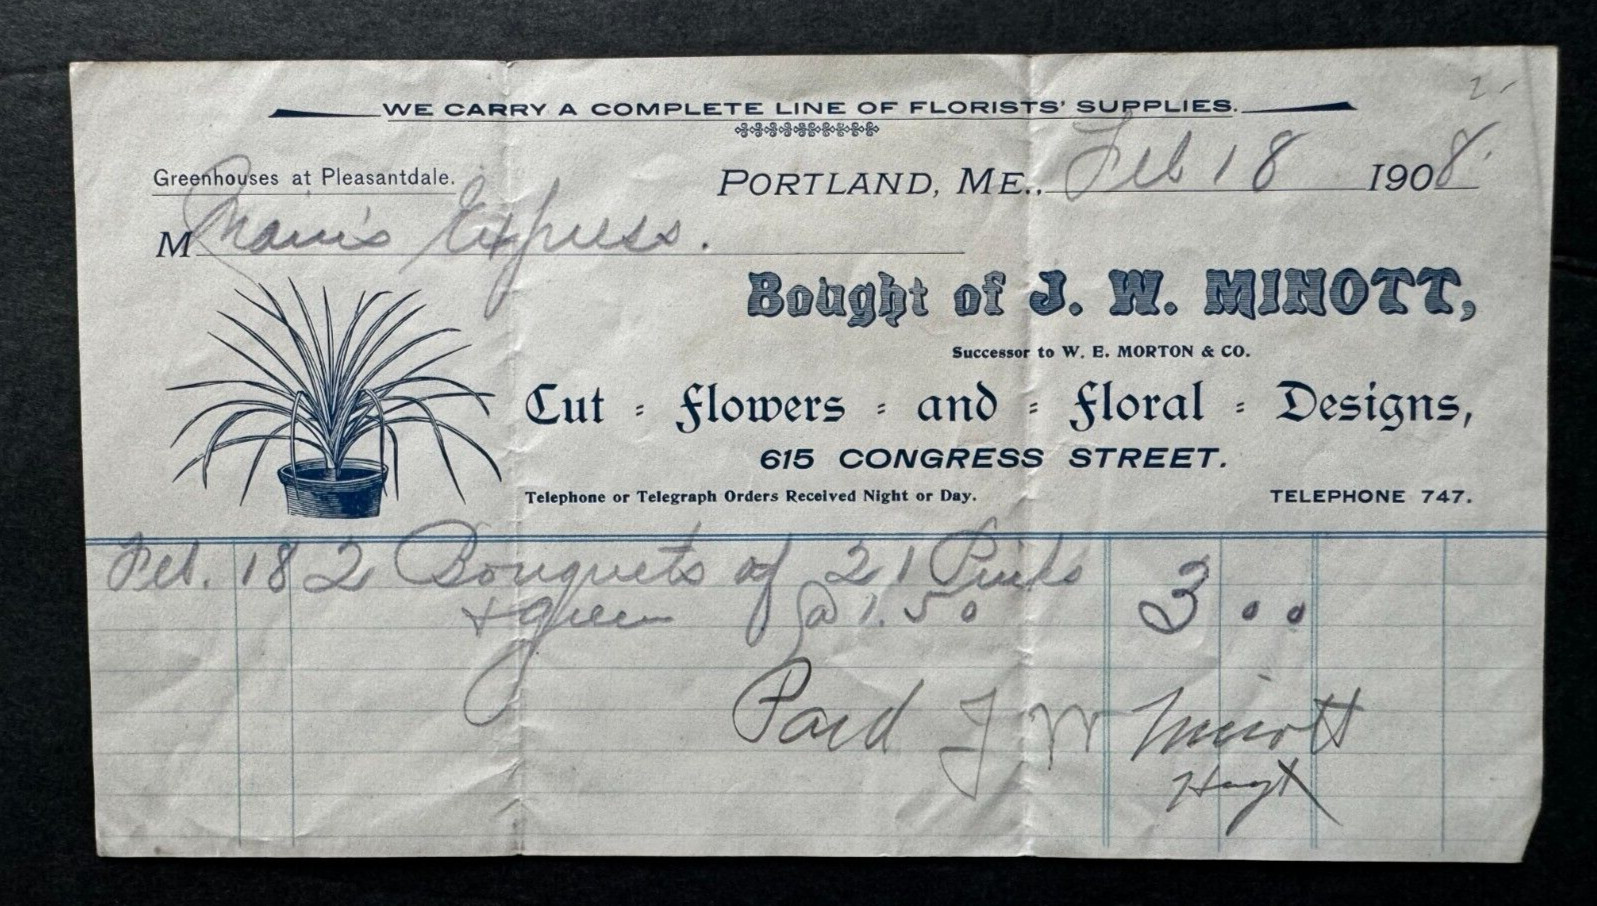 2
WE CARRY A COMPLETE LINE OF FLORISTS' SUPPLIES.
Greenhouses at Pleasantdale.
PORTLAND, ME., Feb 18 1908.
M Express.
Bought of J. W. MINOTT,
Successor to W. E. MORTON & CO.
Cut - Flowers - and - Floral - Designs,
615 CONGRESS STREET.
Telephone or Telegraph Orders Received Night or Day. TELEPHONE 747.
Feb. 18 2 Bouquets of 21 Pinks
+ green @ 1.50 3 00
Paid J W Minott
Hoyt